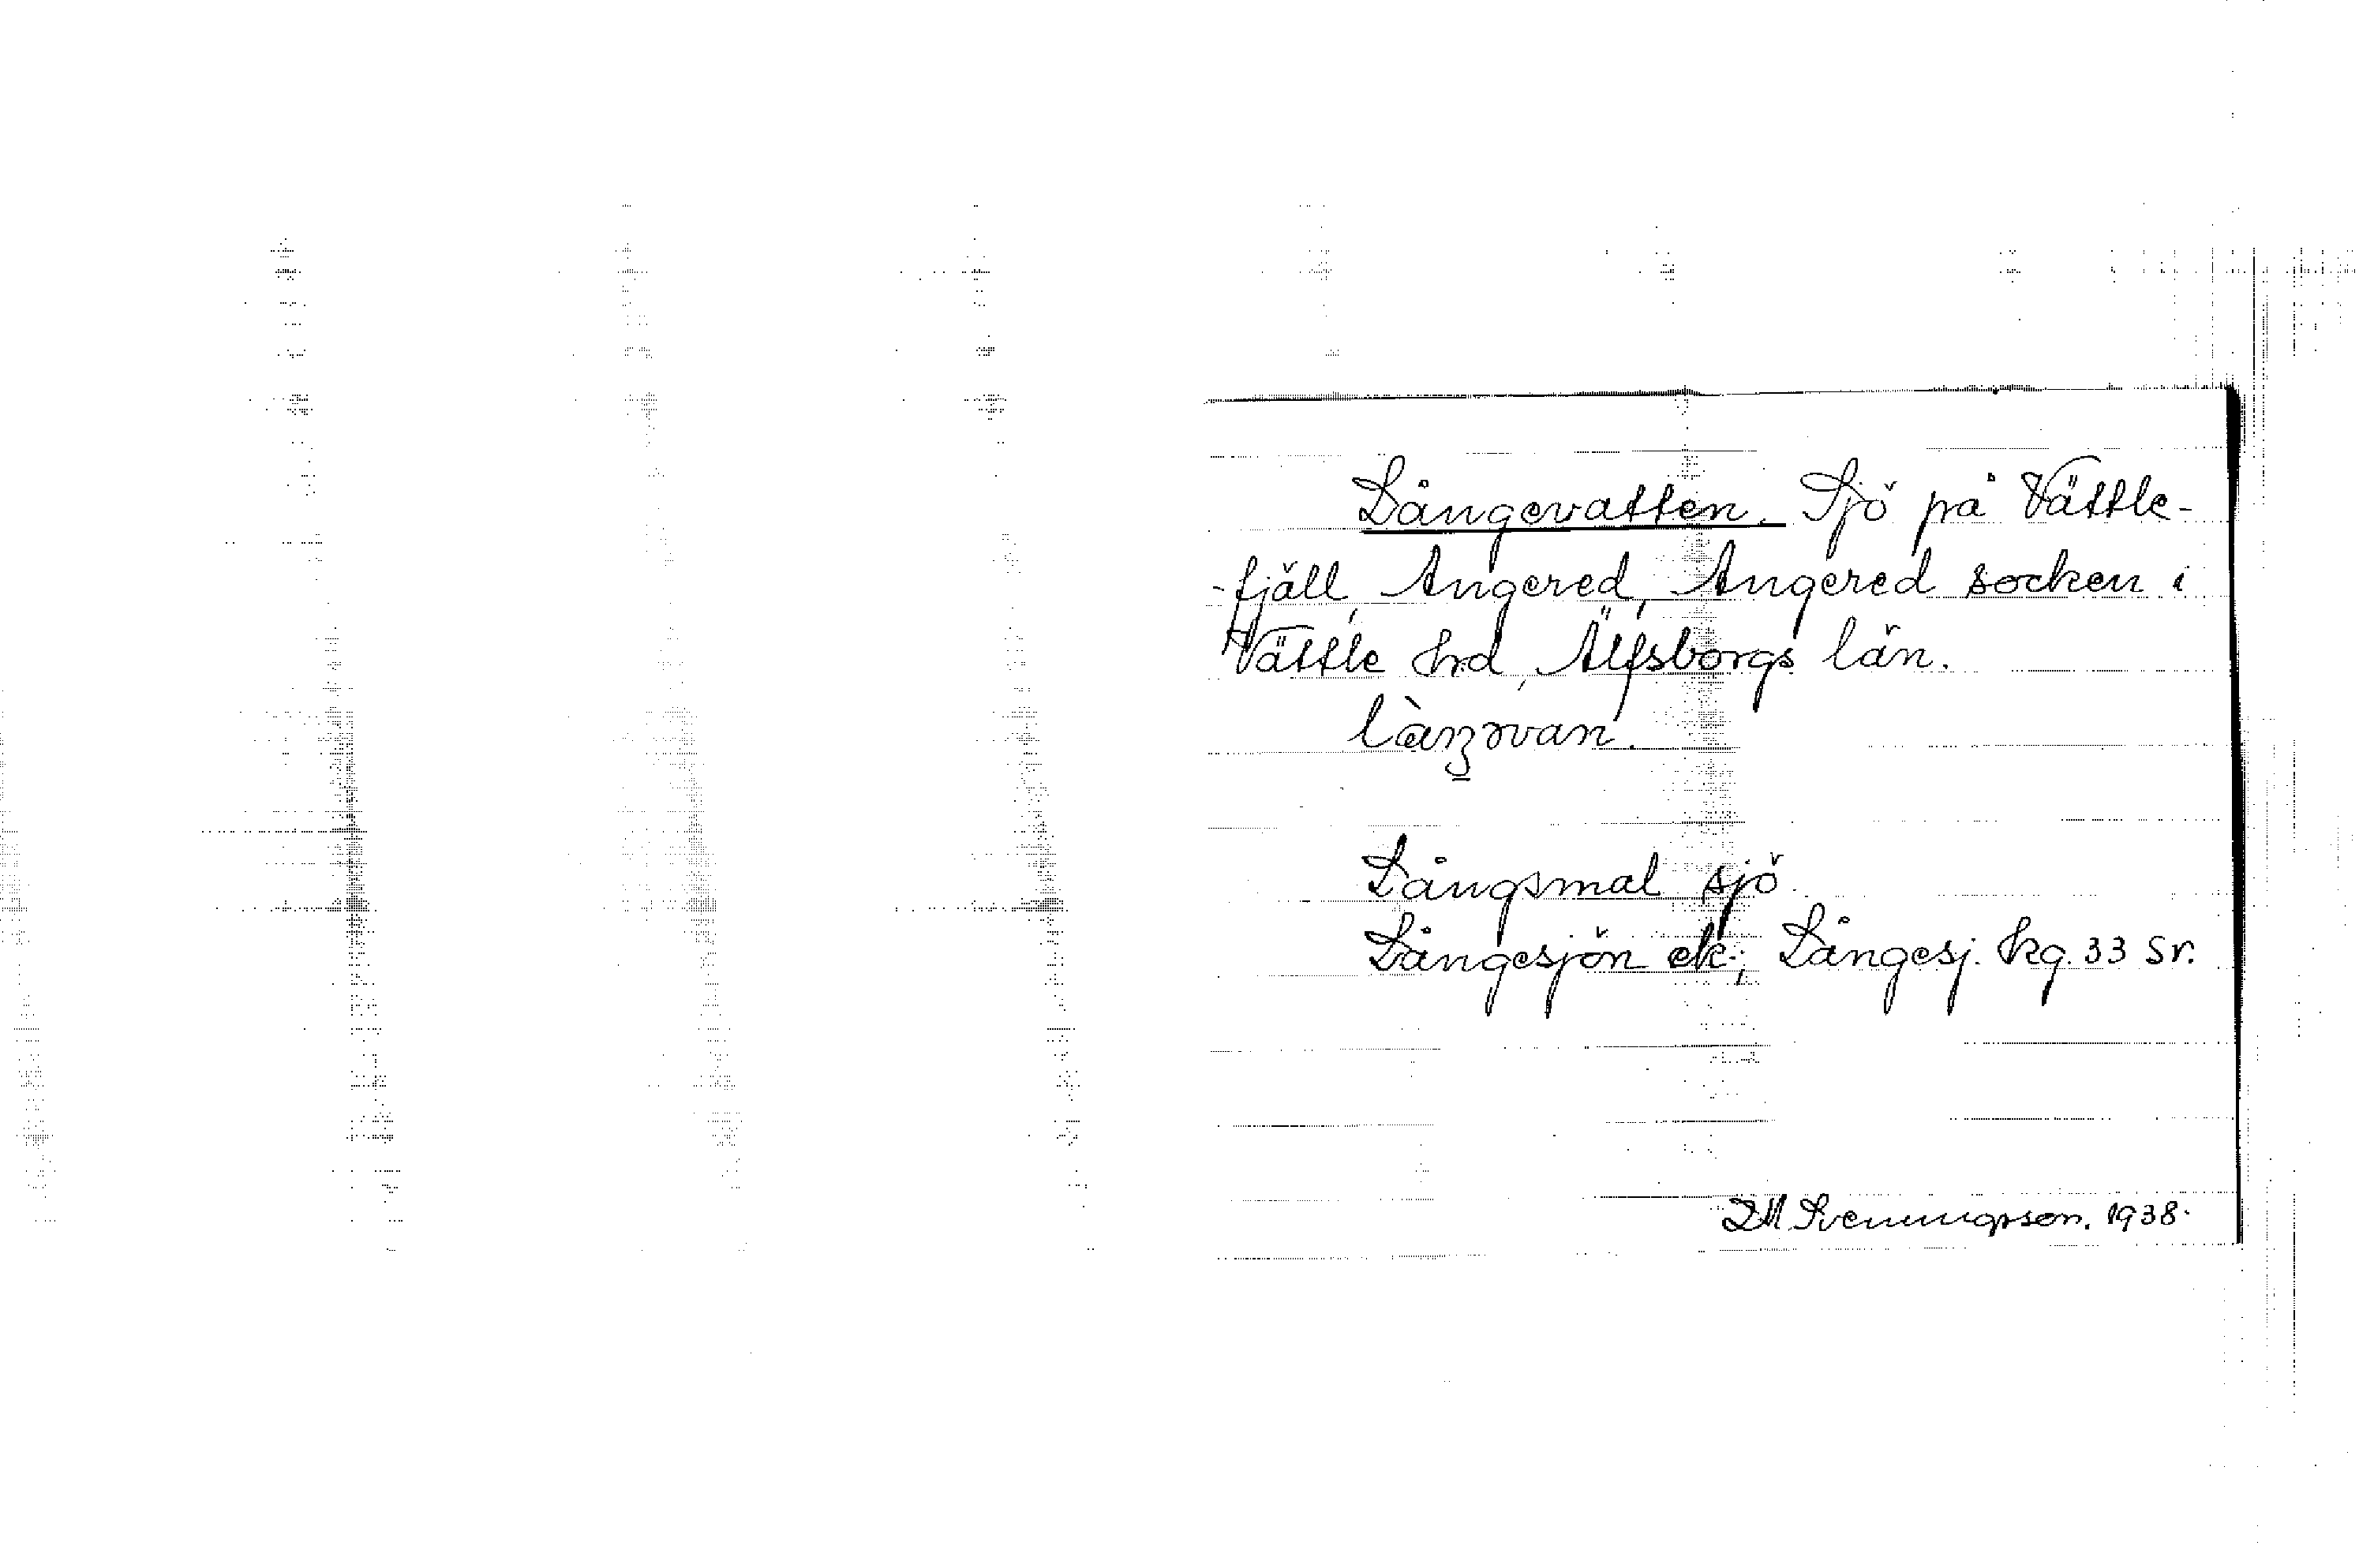 Långevatten. Sjö på Vättle-
-fjäll, Angered, Angered socken i
Vättle hd, Älfsborgs län.
Långsmal sjö.
Långesjön etc.; Långesj. kg. 33 Sr.
Svenungsson. 1938.